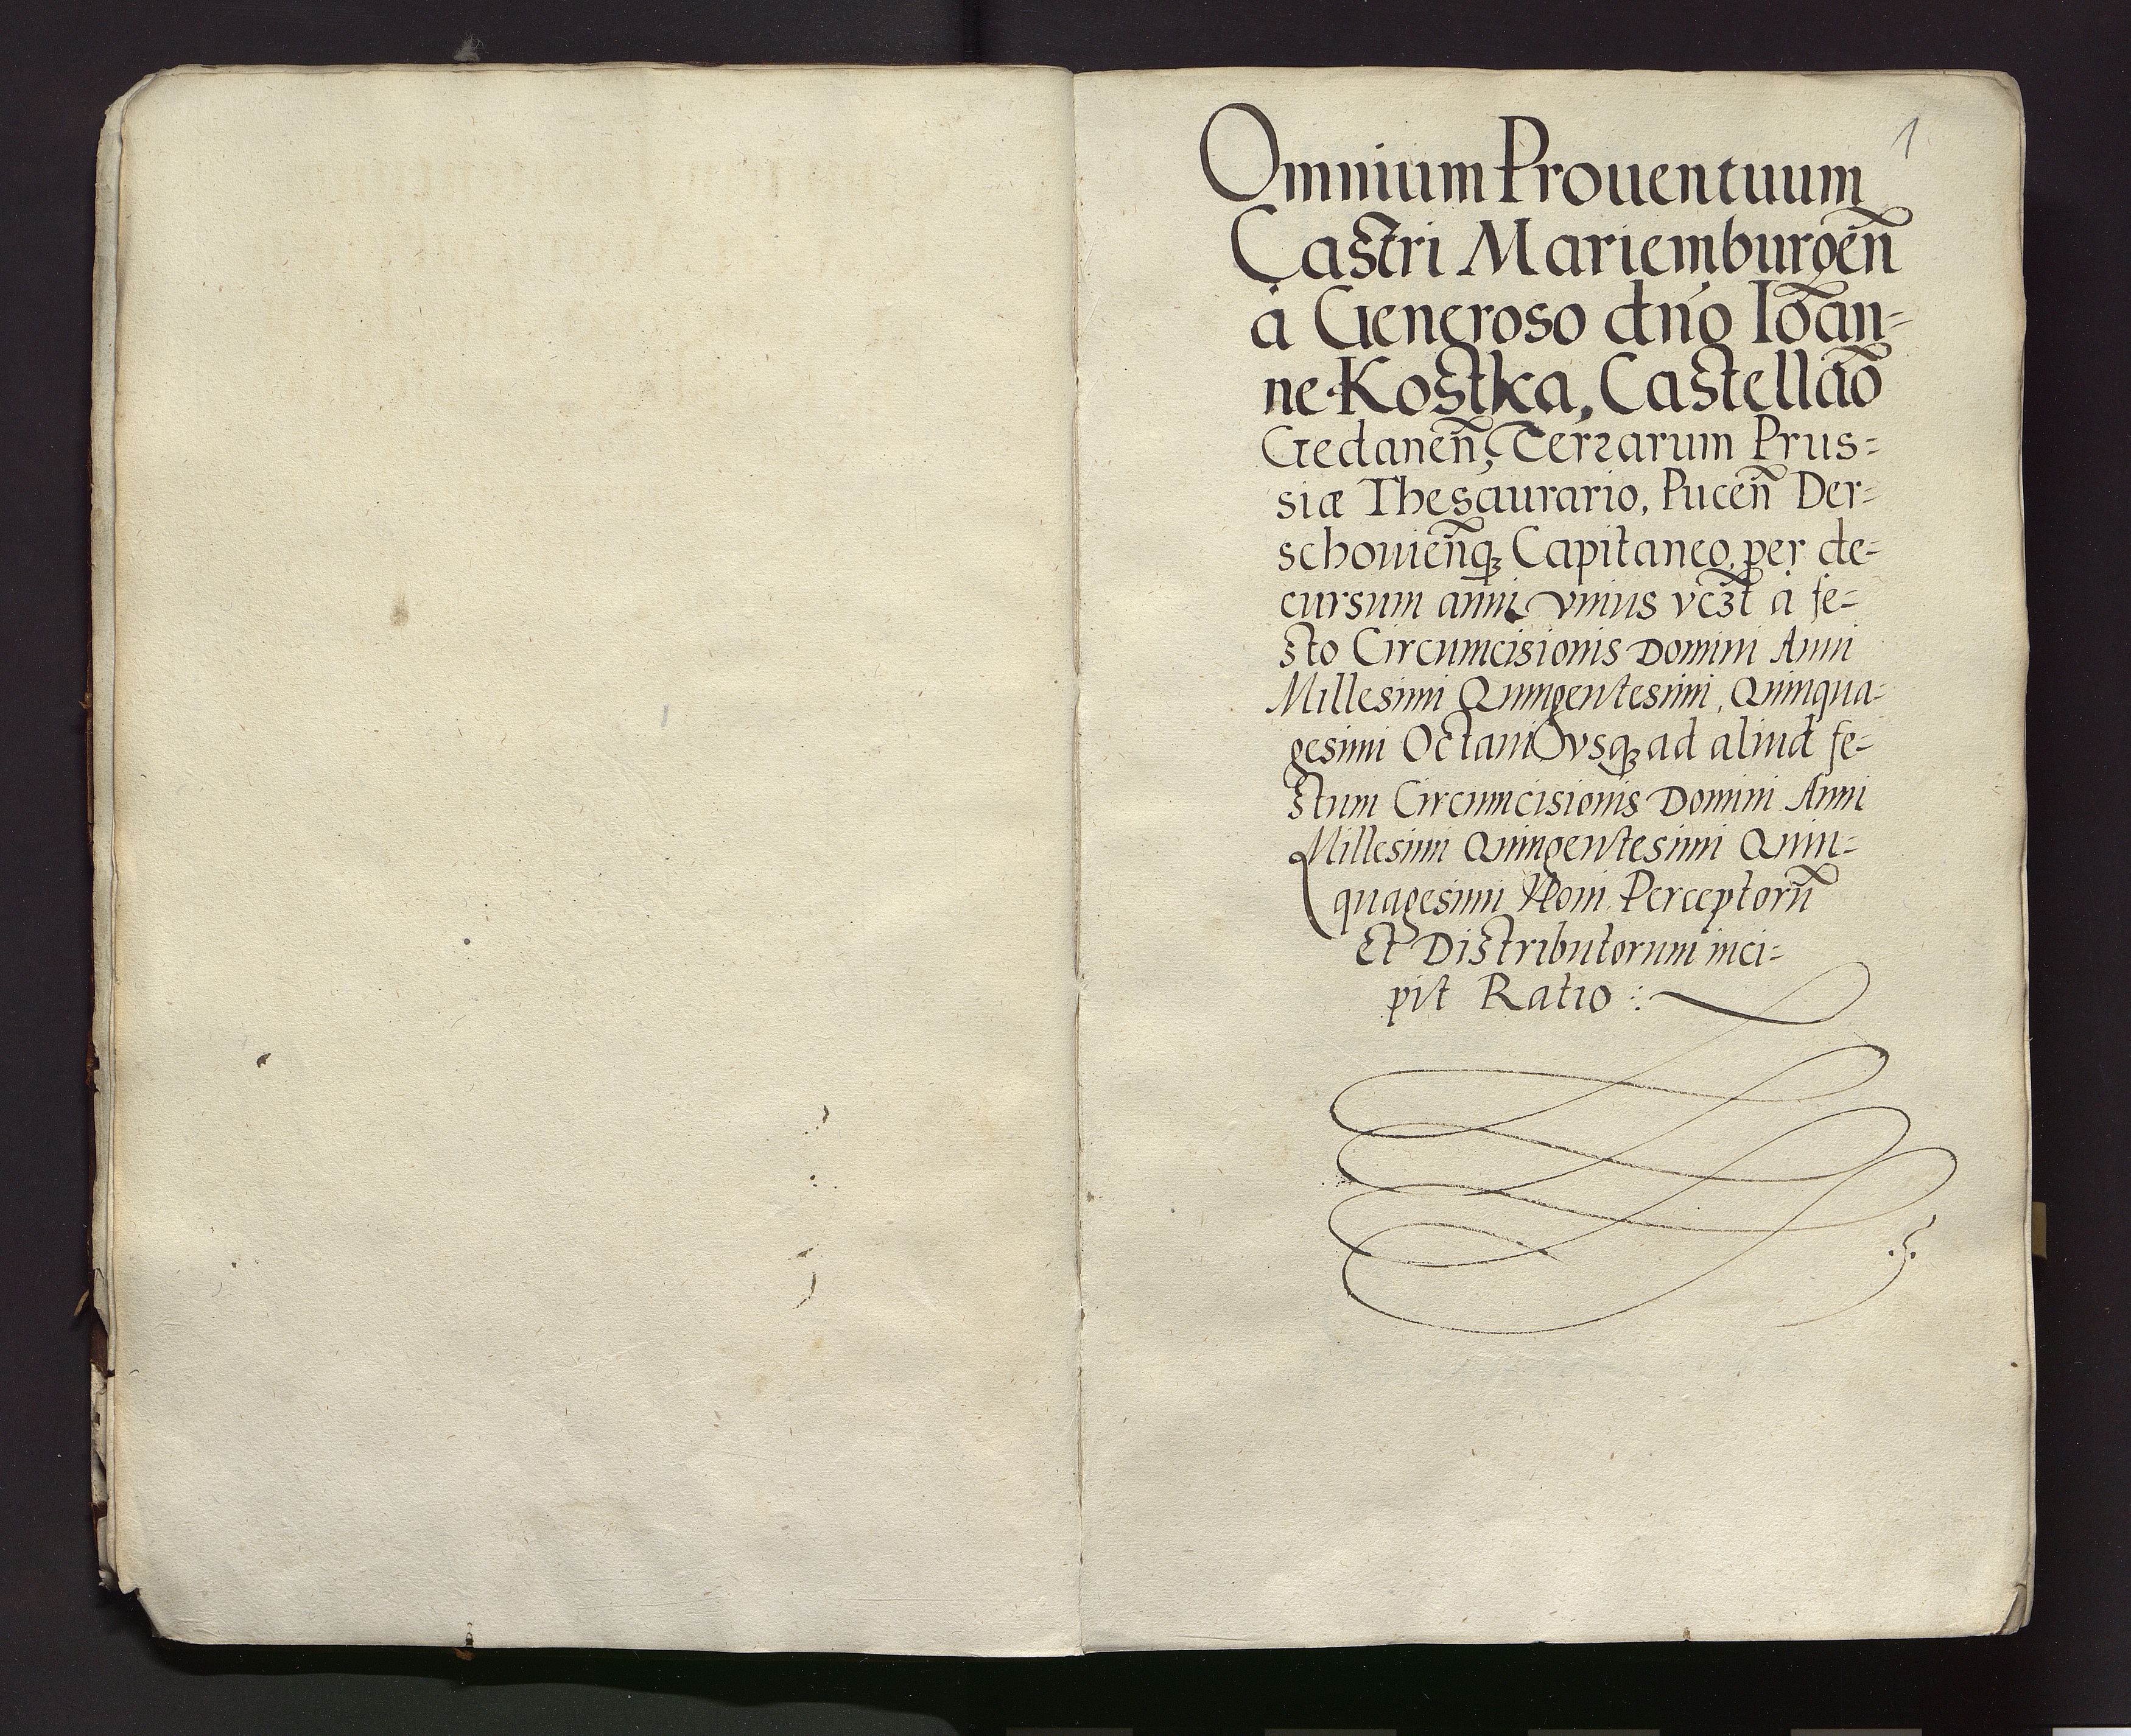 1
Omnium Prouentuum
Castri Mariemburgen̄
à Generoso dn̄o Ioān=
ne Kostka, Castellāo
Gedanen̄, Terrarum Prus=
siæ Thesaurario, Pucen̄ Der=
schouien̄qꝫ Capitaneo, per de=
cursum anni vnius vcꝫt à fe=
sto Circumcisionis Domini Anni
Millesimi Quingentesimi, Quinqua=
gesimi Octaui vsqꝫ ad aliud fe=
stum Circumcisionis Domini Anni
Millesimi Quingentesimi Quin=
quagesimi Noni Perceptorū
Et Distributorum inci=
pit Ratio :